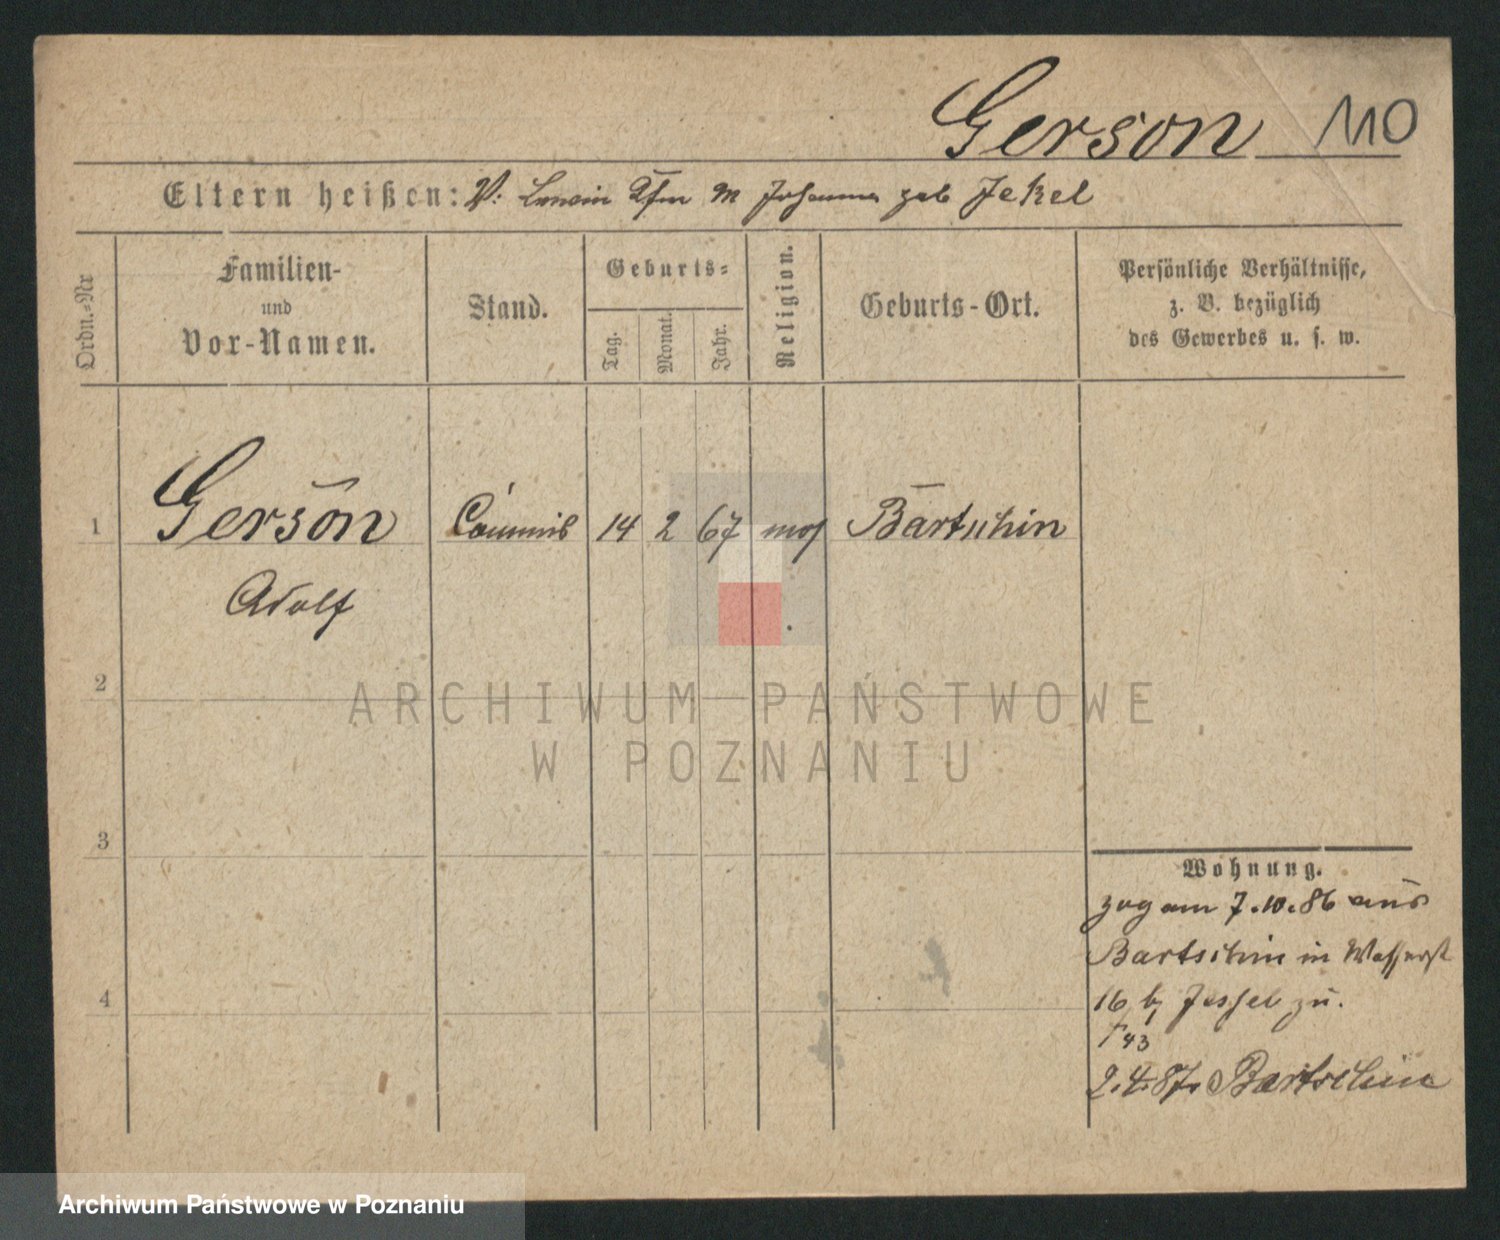 Gerson 110
Eltern heißen: V: Lewin Kfm M Johanna geb Jekel
Ordn.-Nr
Familien-
und
Vor-Namen.
Stand.
Geburts-
Tag.
Monat.
Jahr.
Religion.
Geburts-Ort.
Persönliche Verhältnisse,
z. B. bezüglich
des Gewerbes u. s. w.
1 Gerson Commis 14 2 67 mos Bartschin
Adolf
2
3
4
ARCHIWUM PAŃSTWOWE
W POZNANIU
Wohnung.
zog am 7.10.86 aus
Bartschin in Wasserst
16 b, Jessel zu.
43
2.4.87. Bartschin
Archiwum Państwowe w Poznaniu